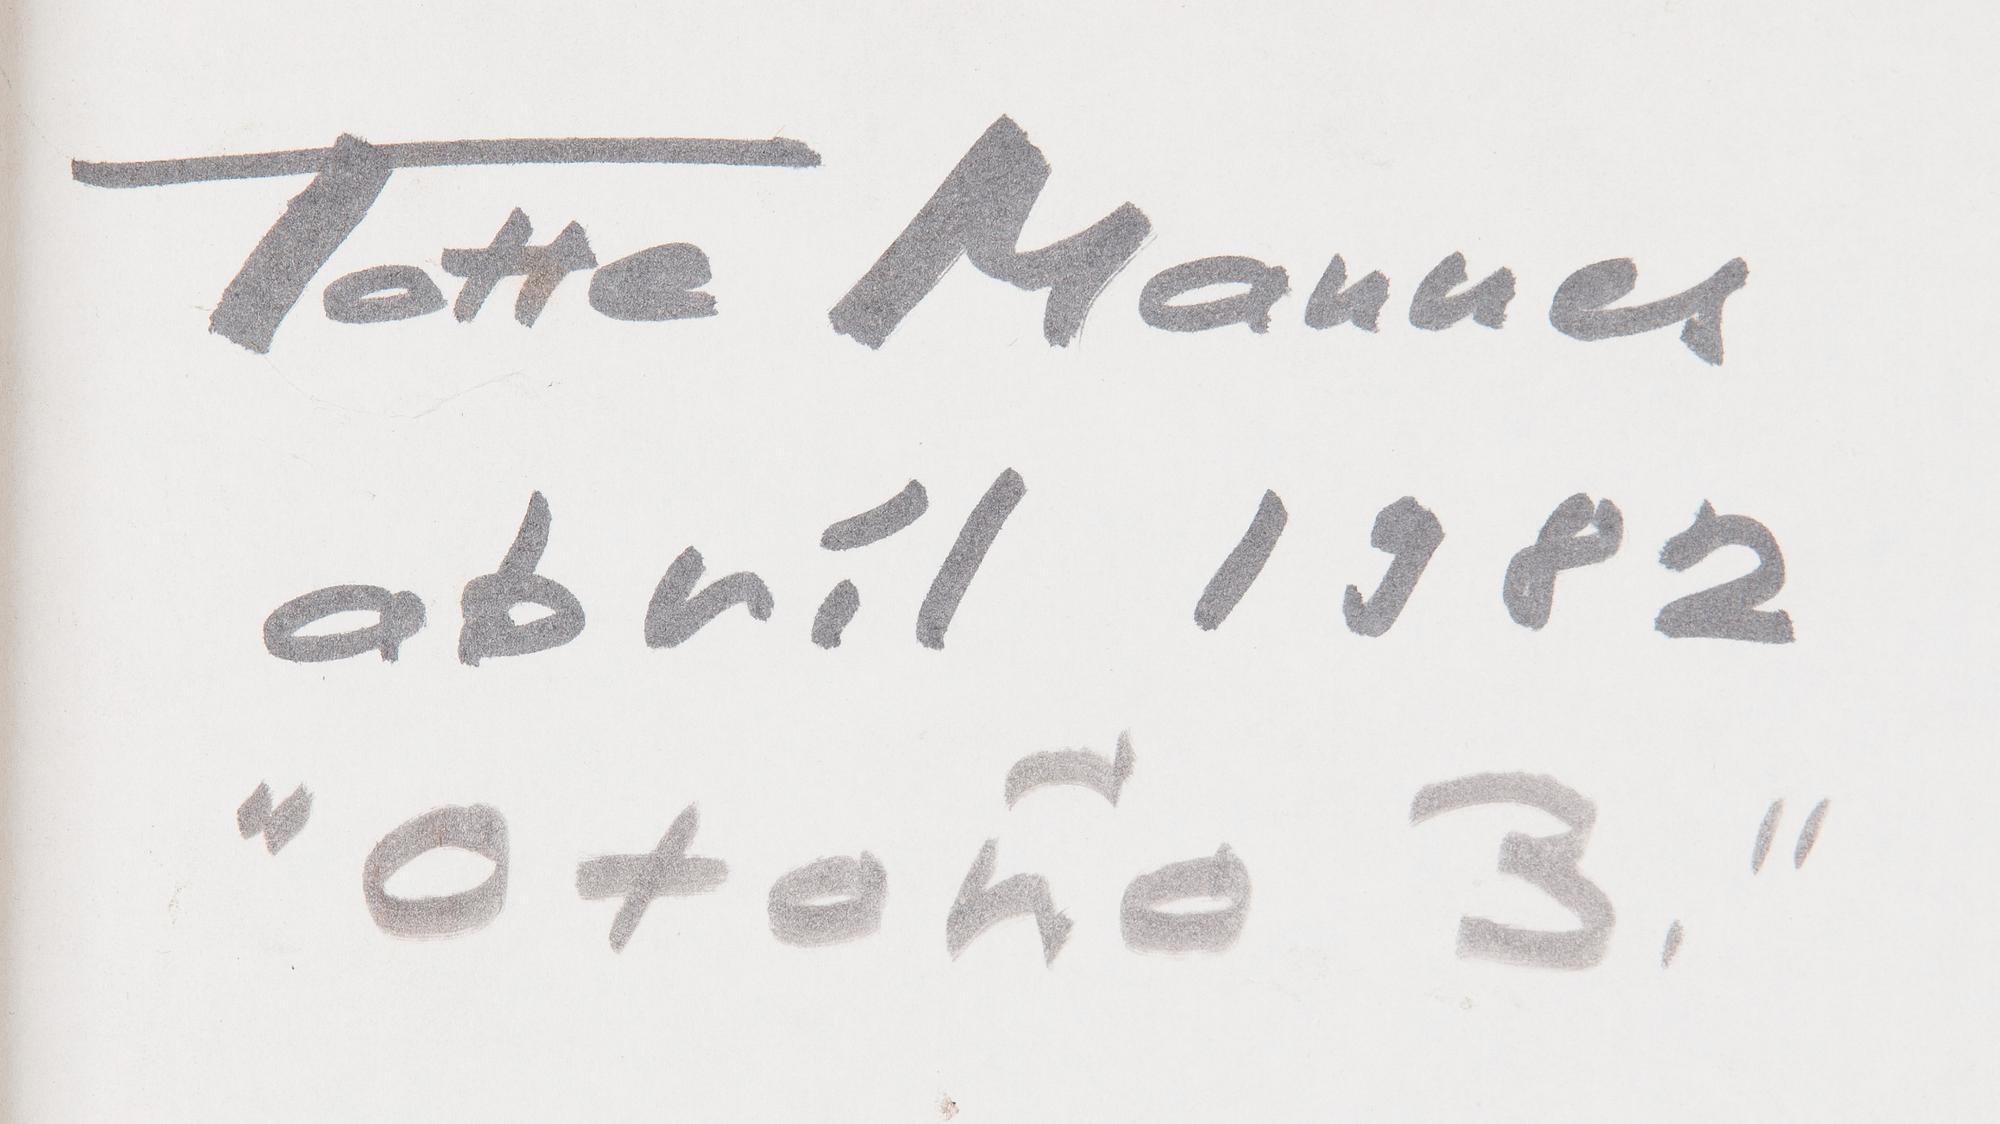 Totte Mannes
abríl 1982
"Otoño 3."